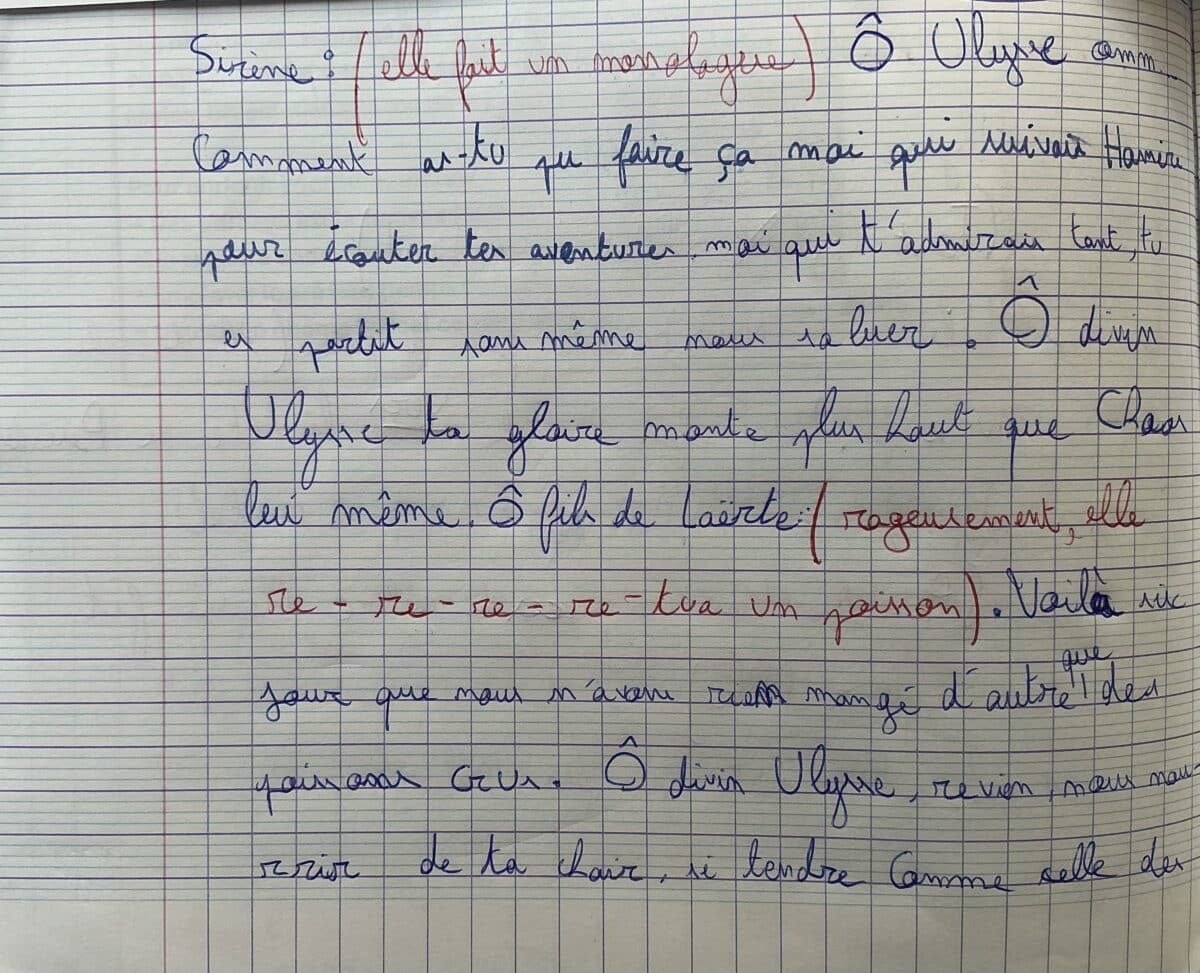 Sirène : (elle fait un monologue) Ô Ulysse comm
Comment as-tu pu faire ça moi qui suivais
pour écouter tes aventures, moi qui t'admirais tant, tu
es partit sans même nous saluer. Ô divin
Ulysse ta gloire monte plus haut que Chaos
lui même. Ô fils de Laërte ! (rageusement, elle
re-re-re-re-tua un poisson). Voilà six
jours que nous n'avons rien mangé d'autre que des
poissons crus. Ô divin Ulysse, revien, nous nou-
rrir de ta chair, si tendre Comme selle des